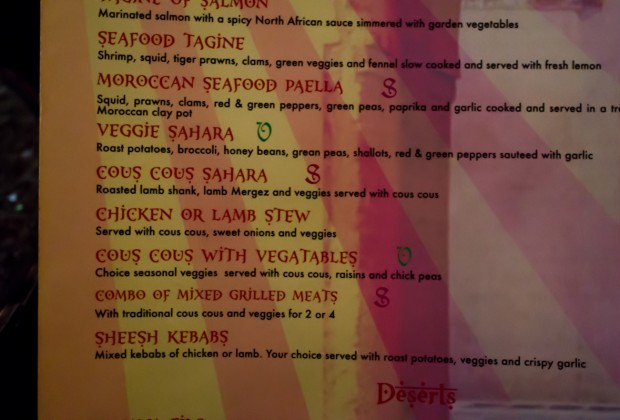 TAGINE OF SALMON
Marinated salmon with a spicy North African sauce simmered with garden vegetables
SEAFOOD TAGINE
Shrimp, squid, tiger prawns, clams, green veggies and fennel slow cooked and served with fresh lemon
MOROCCAN SEAFOOD PAELLA S
Squid, prawns, clams, red & green peppers, green peas, paprika and garlic cooked and served in a
Moroccan clay pot
VEGGIE SAHARA V
Roast potatoes, broccoli, honey beans, grean peas, shallots, red & green peppers sauteed with garlic
COUS COUS SAHARA S
Roasted lamb shank, lamb Mergez and veggies served with cous cous
CHICKEN OR LAMB STEW
Served with cous cous, sweet onions and veggies
COUS COUS WITH VEGATABLES V
Choice seasonal veggies served with cous cous, raisins and chick peas
COMBO OF MIXED GRILLED MEATS S
With traditional cous cous and veggies for 2 or 4
SHEESH KEBABS
Mixed kebabs of chicken or lamb. Your choice served with roast potatoes, veggies and crispy garlic
Deserts